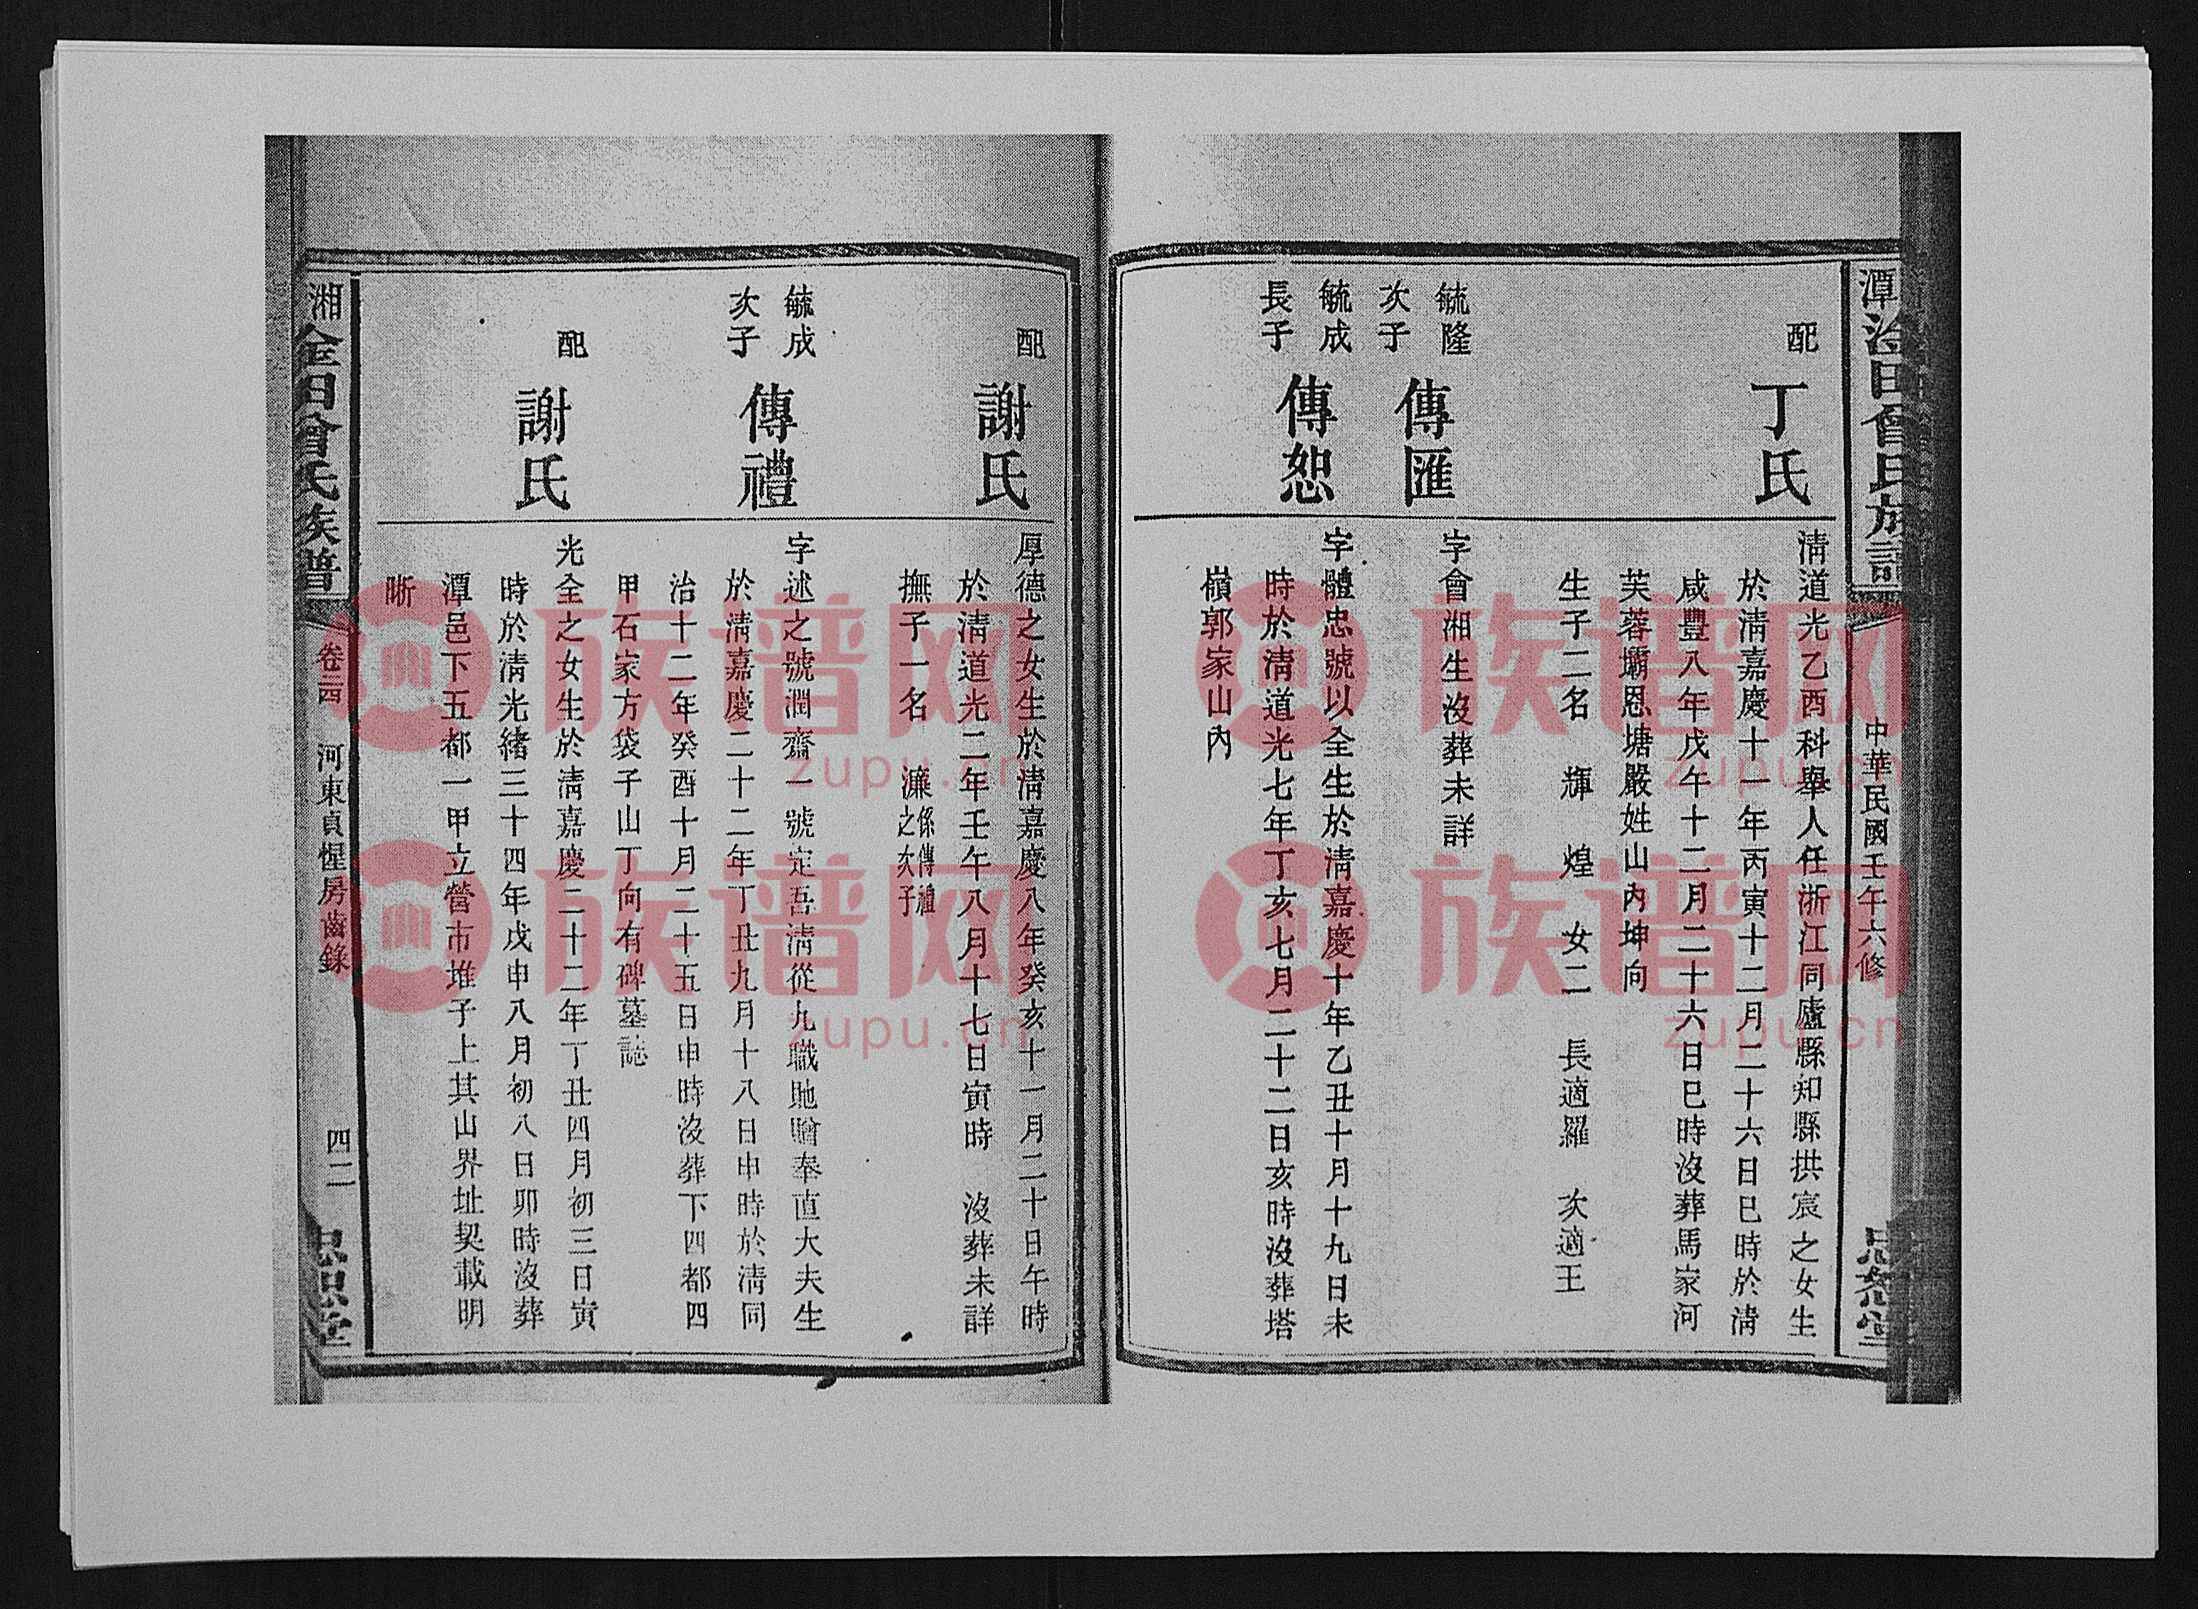 中華民國壬午六修
配
丁氏
清道光乙酉科舉人任浙江同廬縣知縣拱宸之女生
於清嘉慶十一年丙寅十二月二十六日巳時於清
咸豐八年戊午十二月二十六日巳時沒葬馬家河
芙蓉壩恩塘嚴姓山內坤向
生子二名 輝 煌 女二 長適羅 次適王
毓隆
次子
傳匯
字會湘生沒葬未詳
毓成
長子
傳恕
字體忠號以全生於清嘉慶十年乙丑十月十九日未
時於清道光七年丁亥七月二十二日亥時沒葬塔
嶺郭家山內
配
謝氏
厚德之女生於清嘉慶八年癸亥十一月二十日午時
於清道光二年壬午八月十七日寅時 沒葬未詳
撫子一名 濂 係傳禮
之次子
毓成
次子
傳禮
字述之號潤齋一號定吾清從九職貤贈奉直大夫生
於清嘉慶二十二年丁丑九月十八日申時於清同
治十二年癸酉十月二十五日申時沒葬下四都四
甲石家方袋子山丁向有碑墓誌
配
謝氏
光全之女生於清嘉慶二十二年丁丑四月初三日寅
時於清光緒三十四年戊申八月初八日卯時沒葬
潭邑下五都一甲立營市堆子上其山界址契載明
晰
湘
金田曾氏族譜
卷之四
河東貞惺房齒錄
四二
忠恕堂
族谱网
zupu.cn
族谱网
zupu.cn
族谱网
zupu.cn
族谱网
zupu.cn